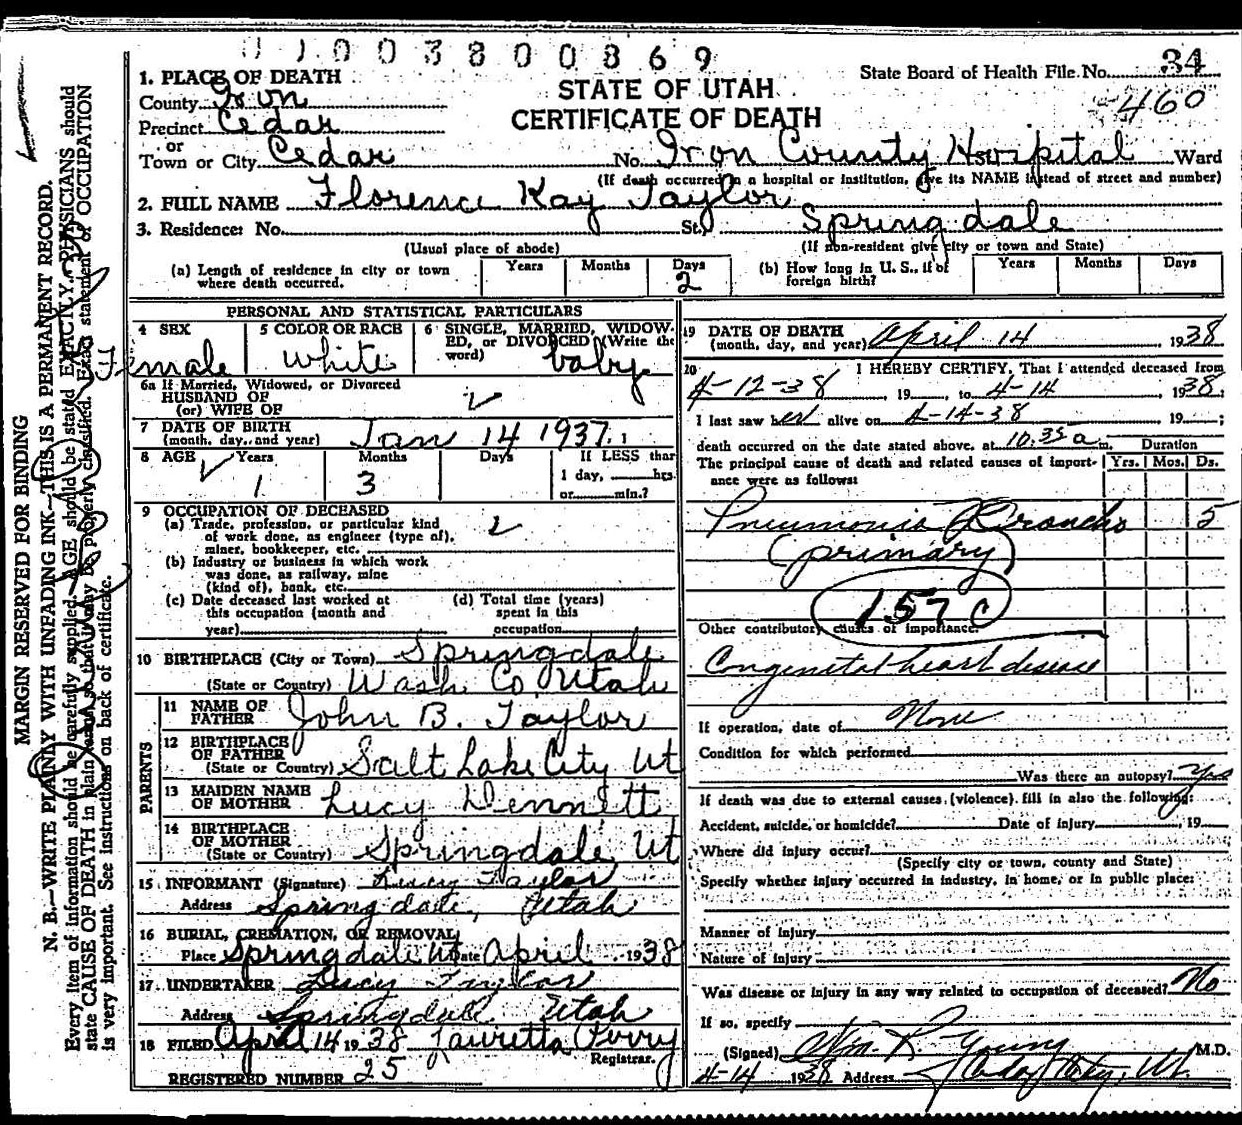 0 1 0 0 3 8 0 0 8 6 9
34
1. PLACE OF DEATH
STATE OF UTAH
State Board of Health File No.
460
County Iron
CERTIFICATE OF DEATH
Precinct Cedar
or
Town or City Cedar No. Iron County Hospital Ward
(If death occurred in a hospital or institution, give its NAME instead of street and number)
2. FULL NAME Florence Kay Taylor
3. Residence: No. St. Springdale
(Usual place of abode) (If non-resident give city or town and State)
(a) Length of residence in city or town where death occurred. Years Months Days 2
(b) How long in U. S., if of foreign birth? Years Months Days
PERSONAL AND STATISTICAL PARTICULARS
4 SEX Female
5 COLOR OR RACE white
6 SINGLE, MARRIED, WIDOWED, OR DIVORCED (Write the word) baby
6a If Married, Widowed, or Divorced
HUSBAND OF
(or) WIFE OF
7 DATE OF BIRTH
(month, day, and year) Jan 14 1937
8 AGE Years Months Days If LESS than
1 3 1 day, hrs.
or min.?
9 OCCUPATION OF DECEASED
(a) Trade, profession, or particular kind
of work done, as engineer (type of),
miner, bookkeeper, etc.
(b) Industry or business in which work
was done, as railway, mine
(kind of), bank, etc.
(c) Date deceased last worked at
this occupation (month and
year)
(d) Total time (years)
spent in this
occupation
10 BIRTHPLACE (City or Town) Springdale
(State or Country) Wash. Co. Utah
PARENTS
11 NAME OF
FATHER John B. Taylor
12 BIRTHPLACE
OF FATHER
(State or Country) Salt Lake City Ut
13 MAIDEN NAME
OF MOTHER Lucy Dennett
14 BIRTHPLACE
OF MOTHER
(State or Country) Springdale, Ut
15 INFORMANT (Signature) Lucy Taylor
Address Springdale, Utah
16 BURIAL, CREMATION, OR REMOVAL
Place Springdale Ut Date April 1938
17 UNDERTAKER Lucy Taylor
Address Springdale Utah
18 FILED April 14 1938 Lauretta Perry
Registrar.
REGISTERED NUMBER 25
19 DATE OF DEATH
(month, day, and year) April 14, 1938
20 I HEREBY CERTIFY, That I attended deceased from
4-12-38, 19 , to 4-14, 1938;
I last saw her alive on 4-14-38 19 ;
death occurred on the date stated above, at 10:35 a m. Duration
The principal cause of death and related causes of importance were as follows: Yrs. Mos. Ds.
Pneumonia Broncho 5
(primary)
157 c
Other contributory causes of importance:
Congenital heart disease
If operation, date of None
Condition for which performed
Was there an autopsy? Yes
If death was due to external causes (violence) fill in also the following:
Accident, suicide, or homicide? Date of injury , 19
Where did injury occur?
(Specify city or town, county and State)
Specify whether injury occurred in industry, in home, or in public place:
Manner of injury
Nature of injury
Was disease or injury in any way related to occupation of deceased? No
If so, specify
(Signed) Wm. R. Young M.D.
4-14 1938 Address Cedar City, Ut.
MARGIN RESERVED FOR BINDING
N. B.—WRITE PLAINLY WITH UNFADING INK—THIS IS A PERMANENT RECORD.
Every item of information should be carefully supplied. AGE should be stated EXACTLY. PHYSICIANS should
state CAUSE OF DEATH in plain terms so that it may be properly classified. Exact statement of OCCUPATION
is very important. See instructions on back of certificate.